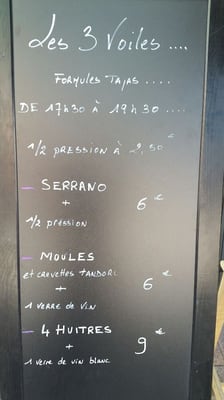 Les 3 Voiles ....
FORMULES TAPAS ....
DE 17h30 à 19h30 ....
1/2 PRESSION à 2,50 €
- SERRANO
+ 6 €
1/2 PRESSION
- MOULES
et crevettes TANDORI
+ 6 €
1 verre de vin
- 4 HUITRES
+ 9 €
1 verre de vin blanc